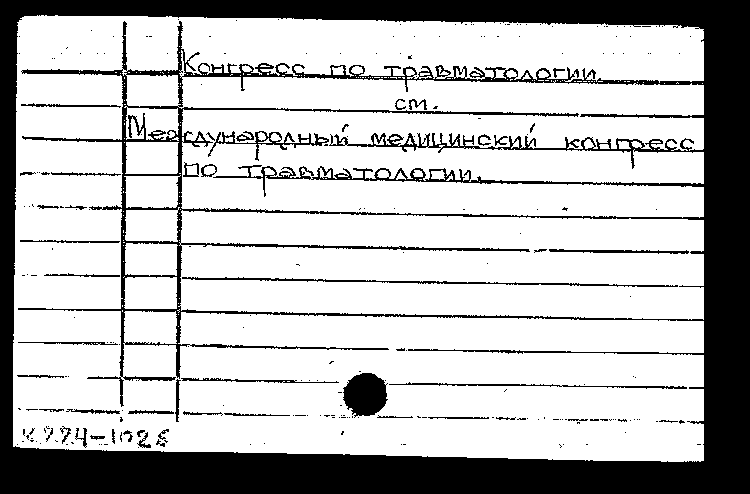 Конгресс по травматологии.
см.
Международный медицинский конгресс
по травматологии.